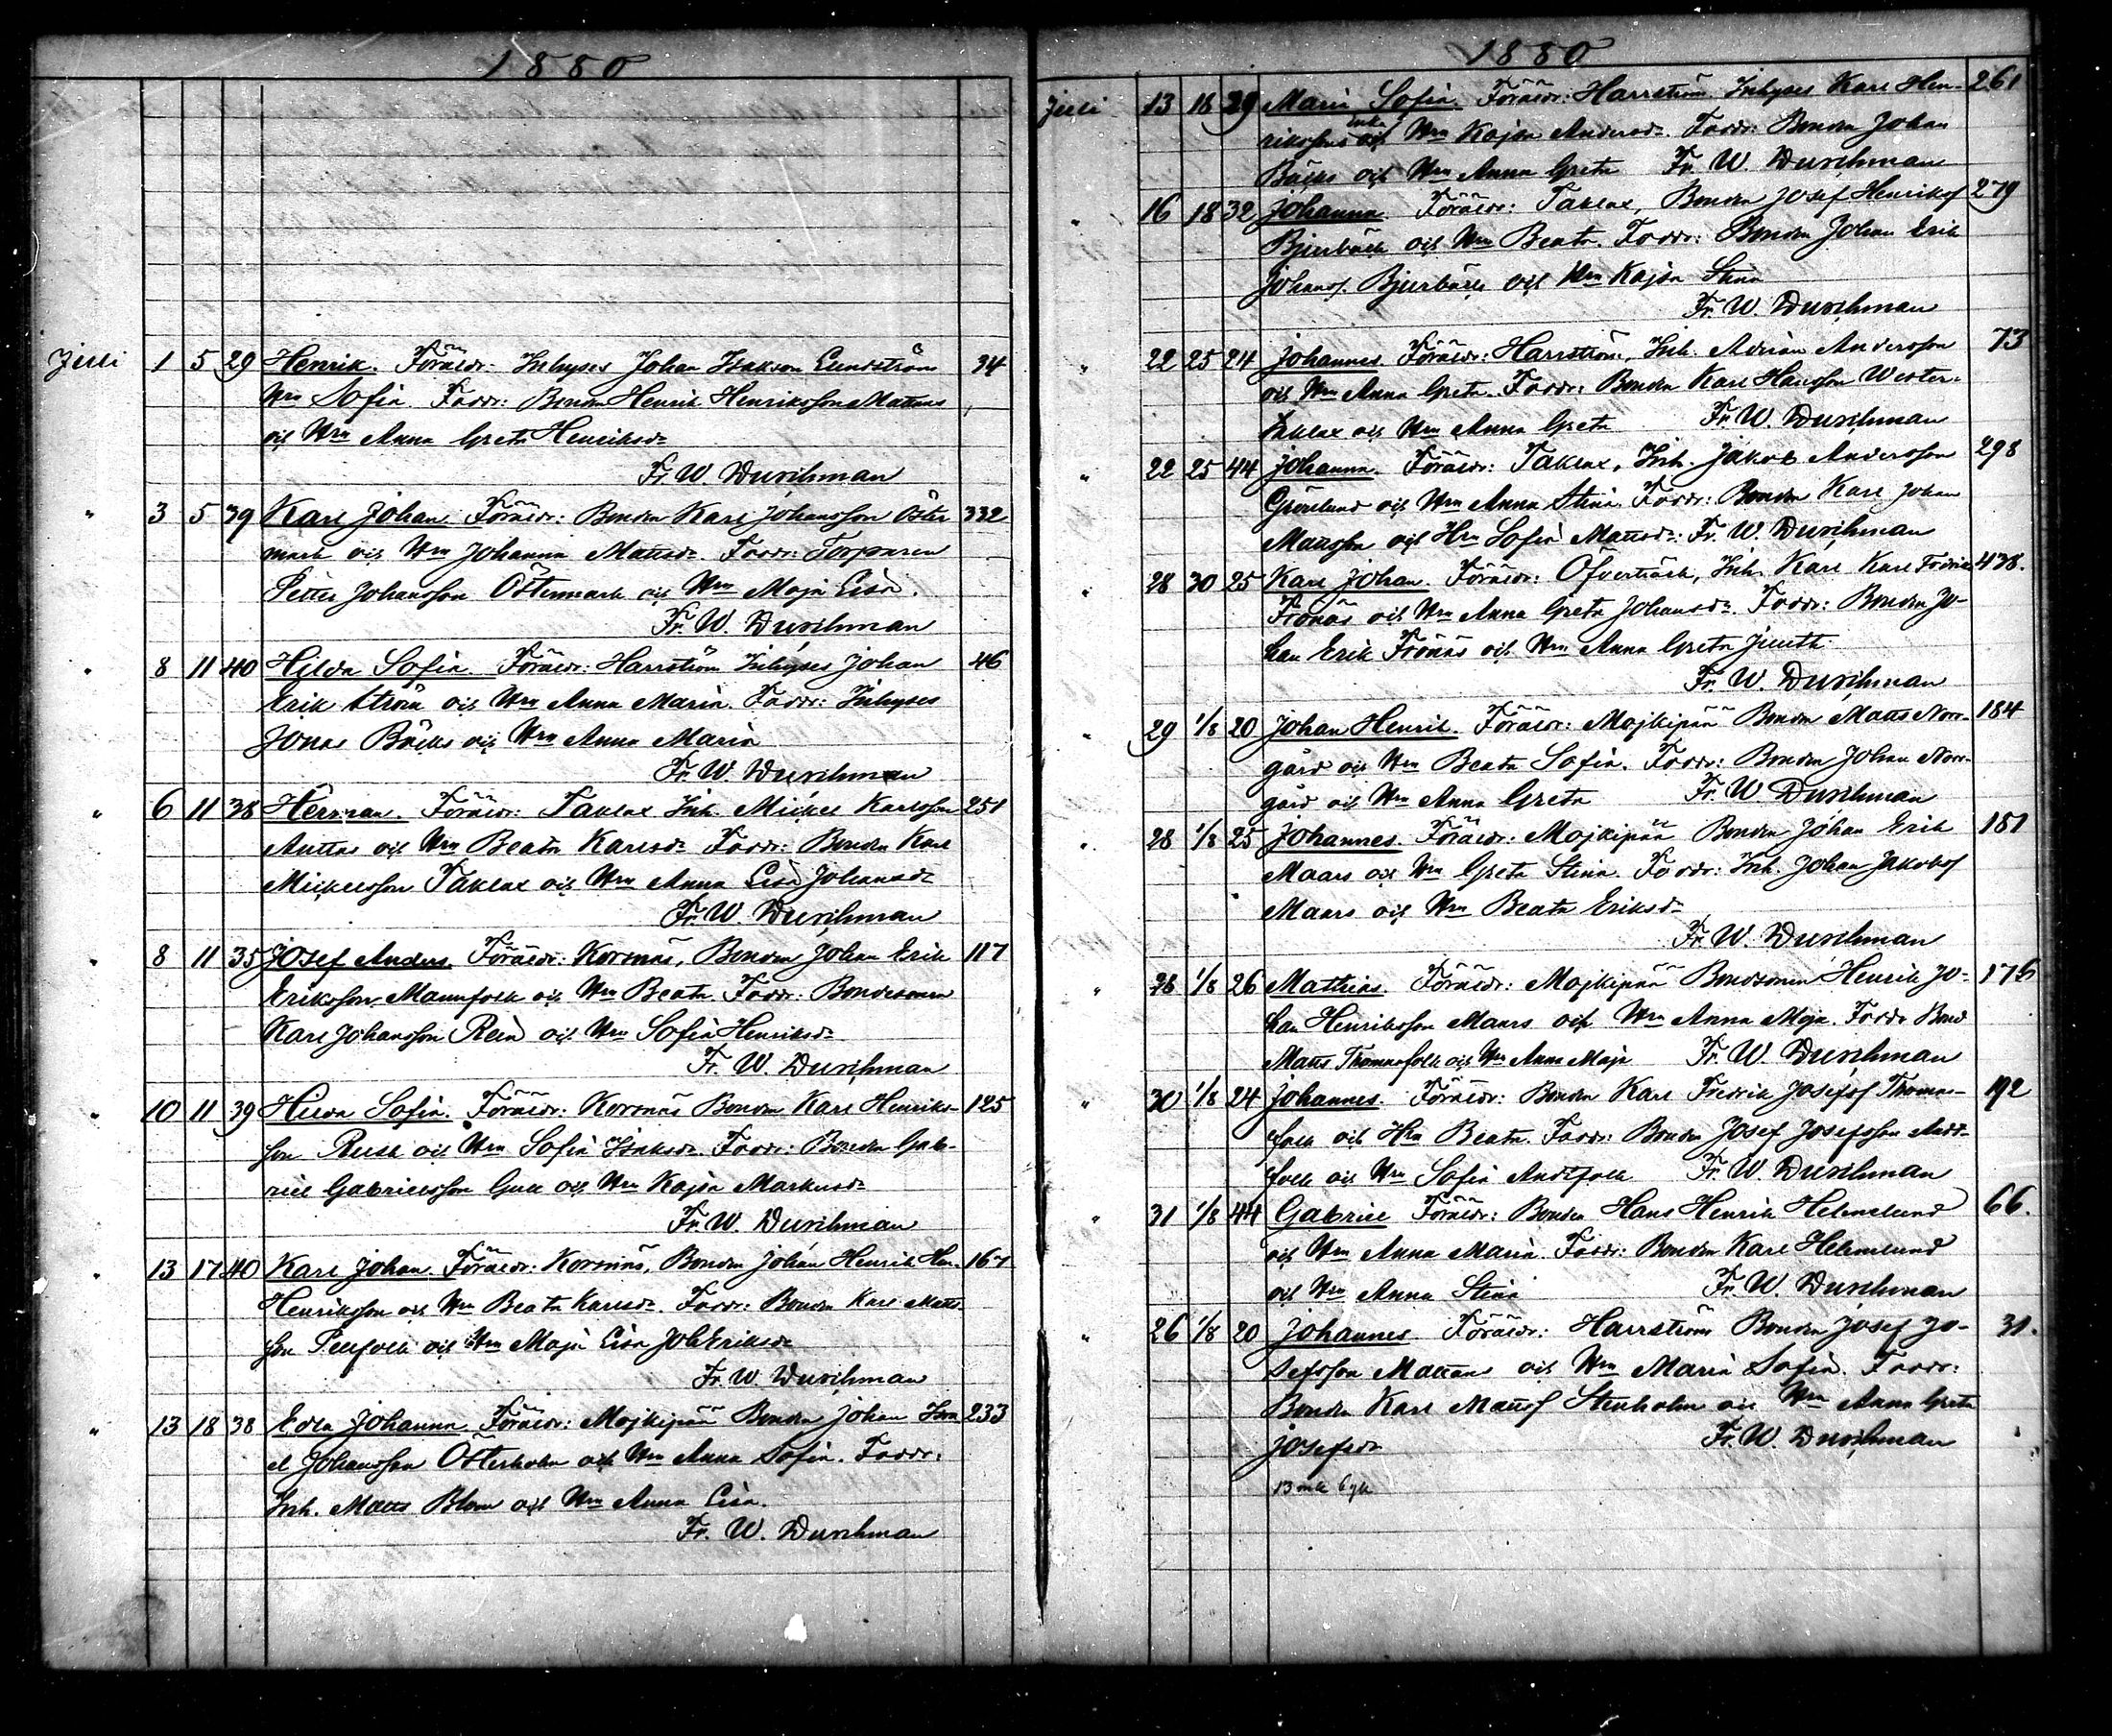 1880
Juli 1 5 29 Henrik. Föräldr: Inhyses Johan Isakson Lundström 34
Hru Sofia. Faddr: Bonden Henrik Henriksson Mattans
och Hru Anna Greta Henriksdr
Fr. W. Durchman
" 3 5 39 Karl Johan. Föräldr: Bonden Karl Johansson Öster 332
mark och Hru Johanna Mattsdr. Faddr: Torparen
Petter Johansson Östermark och Hru Maja Lisa.
Fr. W. Durchman
" 8 11 40 Hilda Sofia. Föräldr: Harrström Inhyses Johan 46
Erik Ström och Hru Anna Maria. Faddr: Inhyses
Jonas Bäcks och Hru Anna Maria
Fr. W. Durchman
" 6 11 38 Herman. Föräldr: Taklax Inh. Mickel Karlsson 251
och Hru Beata Karlsdr Faddr: Bonden Karl
Mickelsson Taklax och Hru Anna Lisa Johansdr
Fr. W. Durchman
" 8 11 35 Josef Anders. Föräldr: Korsnäs, Bonden Johan Erik 117
Eriksson Mannfolk och Hru Beata. Faddr: Bondesonen
Karl Johansson Rein och Hru Sofia Henriksdr
Fr. W. Durchman
" 10 11 39 Hilda Sofia. Föräldr: Korsnäs Bonden Karl Henriks- 125
son Rusk och Hru Sofia Isaksdr. Faddr: Bonden Gab-
riel Gabrielsson Gull och Hru Kajsa Markusdr
Fr. W. Durchman
" 13 17 40 Karl Johan. Föräldr: Korsnäs, Bonden Johan Henrik Hen- 167
Henriksson och Hru Beata Karlsdr. Faddr: Bonden Karl Matts
son Pellfolk och Hru Maja Lisa Joh Eriksdr
Fr. W. Durchman
" 13 18 38 Edla Johanna. Föräldr: Mojkipää Bonden Johan Isra 233
el Johansson Österholm och Hru Anna Sofia. Faddr:
Inh. Matts Blom och Hru Anna Lisa.
Fr. W. Durchman
1880
Juli 13 18 29 Maria Sofia. Föräldr: Harrström Inhyses Karl Hen- 261
rikssons enka Hru Kajsa Andersdr. Faddr: Bonden Johan
Bäcks och Hru Anna Greta Fr. W. Durchman
" 16 18 32 Johanna. Föräldr: Taklax, Bonden Josef Henriksf 279
Bjurbäck och Hru Beata. Faddr: Bonden Johan Erik
Johansf. Bjurbäck och Hru Kajsa Stina
Fr. W. Durchman
" 22 25 24 Johannes. Föräldr: Harrström, Inh. Adrian Andersson 73
och Hru Anna Greta. Faddr: Bonden Karl Hansson Wester-
taklax och Hru Anna Greta Fr. W. Durchman
" 22 25 44 Johanna. Föräldr: Taklax, Inh. Jakob Andersson 298
Grönlund och Hru Anna Stina. Faddr: Bonden Karl Johan
Mattsson och Hru Sofia Mattsdr: Fr. W. Durchman
" 28 30 25 Karl Johan. Föräldr: Öfverträsk, Inh. Karl Karl Fredrik 438.
Frönäs och Hru Anna Greta Johansdr. Faddr: Bonden Jo-
han Erik Frönäs och Hru Anna Greta Juuth
Fr. W. Durchman
" 29 1/8 20 Johan Henrik. Föräldr: Mojkipää Bonden Matts Norr- 184
gård och Hru Beata Sofia. Faddr: Bonden Johan Norr-
gård och Hru Anna Greta Fr. W. Durchman
" 28 1/8 25 Johannes. Föräldr: Mojkipää Bonden Johan Erik 181
Maars och Hru Greta Stina. Faddr: Inh. Johan Jakobsf
Maars och Hru Beata Eriksdr
Fr. W. Durchman
" 28 1/8 26 Mathias. Föräldr: Mojkipää Bondsonen Henrik Jo- 176
han Henriksson Maars och Hru Anna Maja. Faddr Bond
Matts Thomasfolk och Hru Anna Maja Fr. W. Durchman
" 30 1/8 24 Johannes. Föräldr: Bonden Karl Fredrik Josefsf Thomas- 192
folk och Hru Beata. Faddr: Bonden Josef Josefsson Ands-
folk och Hru Sofia Andsfolk Fr. W. Durchman
" 31 1/8 44 Gabriel Föräldr: Bonden Hans Henrik Helenelund 66.
och Hru Anna Maria. Faddr: Bonden Karl Helenelund
och Hru Anna Stina Fr. W. Durchman
" 26 1/8 20 Johannes. Föräldr: Harrström Bonden Josef Jo- 31.
sefsson Mattans och Hru Maria Sofia. Faddr:
Bonden Karl Mattsf Stenholm och Hru Anna Greta
Josefsdr Fr. W. Durchman
13 mk 6 qk